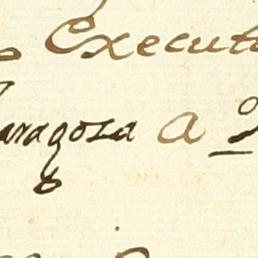 Executo
aragoza a